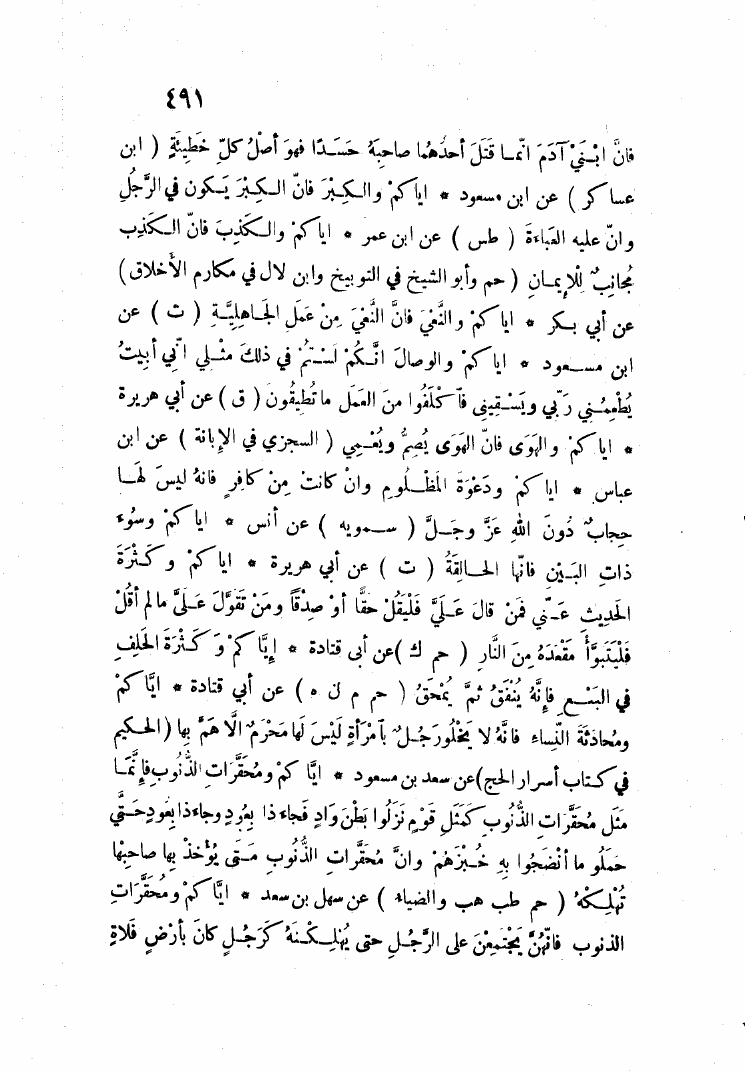 ٤٩١
فانَّ ابْنَيْ آدَمَ انّمـا قَتَلَ أحدُهُما صاحبَهُ حَسَدًا فهوَ أصْلُ كلِّ خَطِيئَةٍ ( ابن
عساكر ) عن ابن مسعود * اياكمْ والكِبْرَ فانّ الكِبْرَ يَكون في الرَّجُلِ
وانّ عليه العَباءةَ ( طس ) عن ابن عمر * اياكمْ والكَذِبَ فانّ الكَذِب
مُجانِبٌ لِلْإيمانِ ( حم وأبو الشيخ في التوبيخ وابن لال في مكارم الأخلاق )
عن أبي بكر * اياكمْ والنَّعْيَ فانَّ النَّعْيَ مِنْ عَمَلِ الجَاهِلِيَّةِ ( ت ) عن
ابن مسعود * اياكمْ والوصالَ انَّكُمْ لَسْتُمْ في ذلكَ مثْلِي انّي أبيتُ
يُطْعِمُنِي رَبّي ويَسْقِينِي فاَكْلَفُوا منَ العَمَل ما تُطِيقُون ( ق ) عن أبي هريرة
* اياكمْ والهَوَى فانّ الهَوَى يُصِمُّ ويُعْمِي ( السجزي في الإبانة ) عن ابن
عباس * اياكمْ ودَعْوَةَ المَظْلُومِ وانْ كانتْ مِنْ كافِرٍ فانهُ ليسَ لَهَا
حِجابٌ دُونَ اللهِ عَزَّ وجَلَّ ( سمويه ) عن أنس * اياكمْ وسُوءَ
ذاتِ البَيْنِ فانّها الحالِقَةُ ( ت ) عن أبي هريرة * اياكمْ وكَثْرَةَ
الحَديثِ عَنّي فَمَنْ قالَ عَلَيَّ فَلْيَقُلْ حقًّا أوْ صِدْقًا ومَنْ تَقَوَّلَ عَلَيَّ مالم أقُلْ
فَلْيَتَبوَّأْ مَقْعَدَهُ مِنَ النَّارِ ( حم ك ) عن أبى قتادة * إيَّاكُمْ وَكَثْرَةَ الحَلِفِ
في البَيْعِ فإِنَّهُ يُنْفَقُ ثمَّ يُمْحَقُ ( حم م ن ه ) عن أبي قتادة * ايَّاكُمْ
ومُحادَثَةَ النِّساء فانَّهُ لا يَخْلُو رَجُلٌ بآمْرَأةٍ لَيْسَ لَها مَحْرَمٌ الَّا هَمَّ بها ( الحكيم
في كتاب أسرار الحج ) عن سعد بن مسعود * ايَّاكمْ ومُحَقَّراتِ الذُّنُوب فإِنَّمَا
مَثَل مُحَقَّراتِ الذُّنُوبِ كَمَثَلِ قَوْمٍ نَزَلُوا بَطْنَ وَادٍ فَجاءَ ذا بِعُودٍ وجاءَ ذا بِعُودٍ حَتَّي
حَمَلُو ما أنْضَجُوا بهِ خُبْزَهُمْ وانَّ مُحَقَّراتِ الذُّنُوبِ مَتَى يُؤْخَذْ بها صاحبُها
تُهْلِكْهُ ( حم طب هب والضياء ) عن سهل بن سعد * ايَّاكمْ ومُحَقَّراتِ
الذنوب فانَّهُنَّ يَجْتَمِعْنَ على الرَّجُلِ حتى يُهْلِكْنَهُ كَرَجُلٍ كانَ بأرْضِ فَلاةٍ